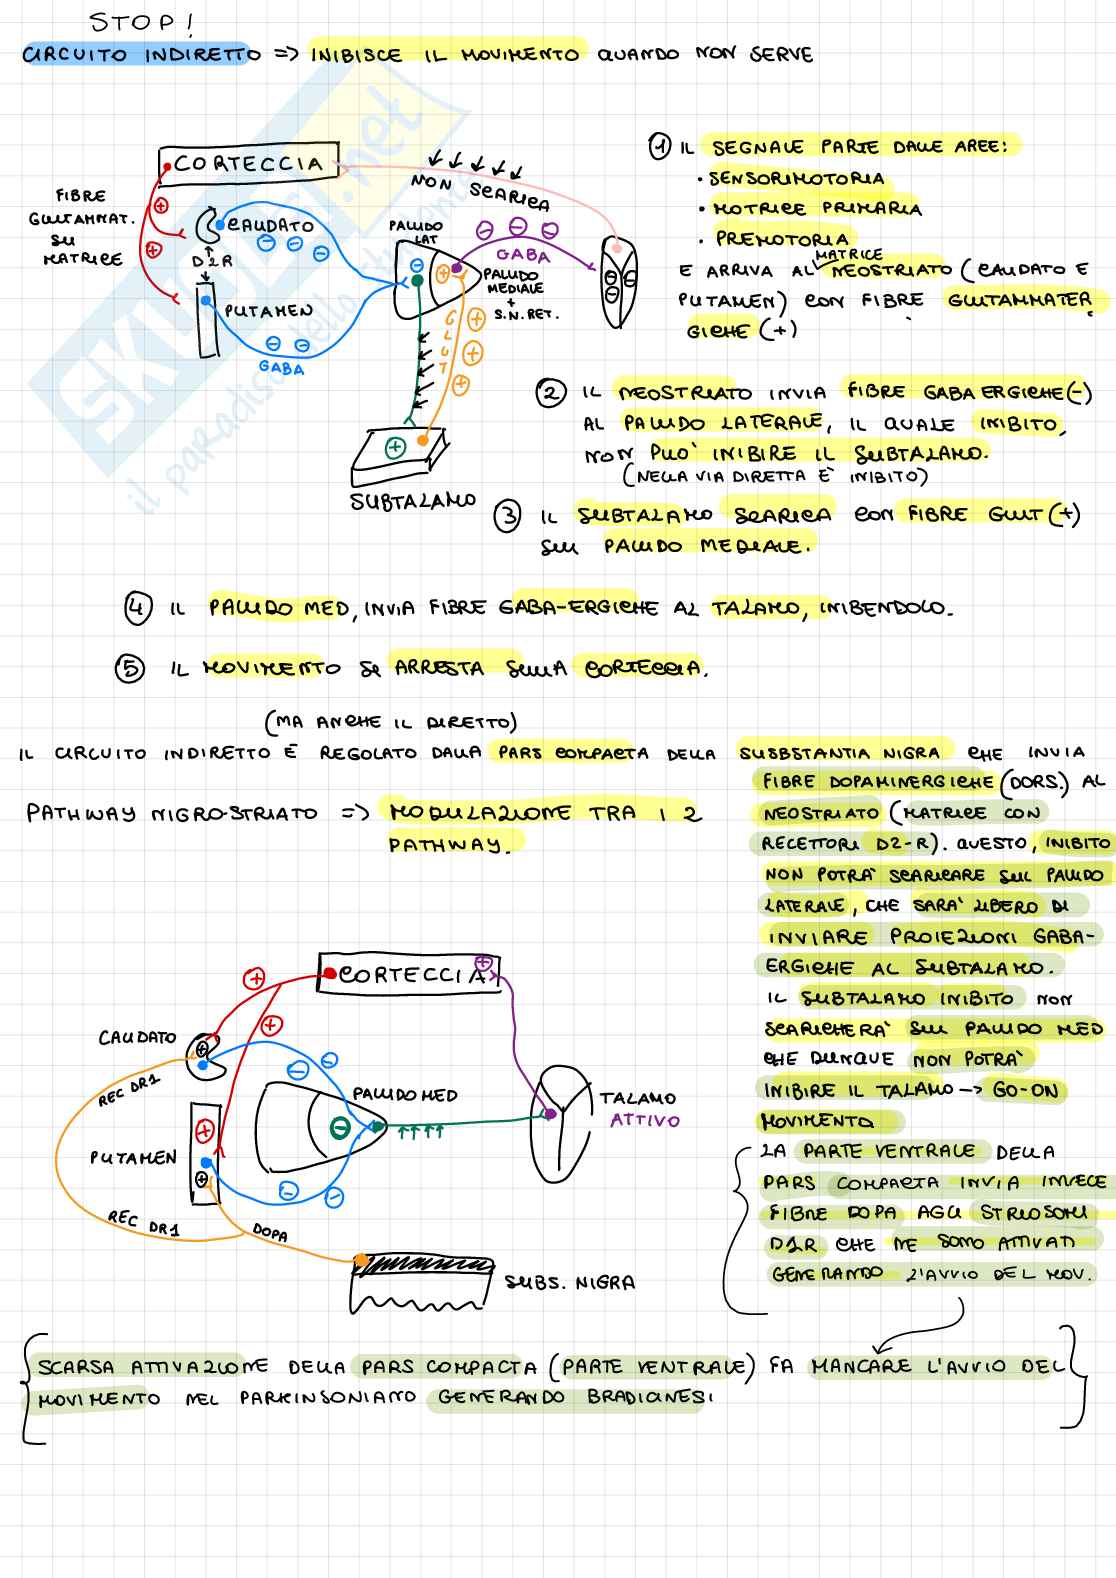 STOP!
CIRCUITO INDIRETTO => INIBISCE IL MOVIMENTO QUANDO NON SERVE
CORTECCIA
NON SCARICA
FIBRE
GLUTAMMAT.
SU
MATRICE
CAUDATO
D2R
PUTAMEN
GABA
PALLIDO
LAT
GABA
PALLIDO
MEDIALE
+
S.N.RET.
GLUT
SUBTALAMO
① IL SEGNALE PARTE DALLE AREE:
• SENSORIMOTORIA
• MOTRICE PRIMARIA
• PREMOTORIA
MATRICE
E ARRIVA AL NEOSTRIATO (CAUDATO E
PUTAMEN) CON FIBRE GLUTAMMATER
GICHE (+)
② IL NEOSTRIATO INVIA FIBRE GABAERGICHE (-)
AL PALLIDO LATERALE, IL QUALE INIBITO,
NON PUO' INIBIRE IL SUBTALAMO.
(NELLA VIA DIRETTA E' INIBITO)
③ IL SUBTALAMO SCARICA CON FIBRE GLUT (+)
SUL PALLIDO MEDIALE.
④ IL PALLIDO MED, INVIA FIBRE GABA-ERGICHE AL TALAMO, INIBENDOLO.
⑤ IL MOVIMENTO SI ARRESTA SULLA CORTECCIA.
(MA ANCHE IL DIRETTO)
IL CIRCUITO INDIRETTO È REGOLATO DALLA PARS COMPACTA DELLA SUSBSTANTIA NIGRA CHE INVIA
FIBRE DOPAMINERGICHE (DORS.) AL
NEOSTRIATO (MATRICE CON
RECETTORI D2-R). QUESTO, INIBITO
NON POTRA' SCARICARE SUL PALLIDO
LATERALE, CHE SARA' LIBERO DI
INVIARE PROIEZIONI GABA-
ERGICHE AL SUBTALAMO.
IL SUBTALAMO INIBITO NON
SCARICHERA' SUL PALLIDO MED
CHE DUNQUE NON POTRA'
INIBIRE IL TALAMO -> GO-ON
MOVIMENTO
PATHWAY NIGRO-STRIATO => MODULAZIONE TRA I 2
PATHWAY.
CORTECCIA
CAUDATO
REC DR1
PUTAMEN
REC DR1
DOPA
PALLIDO MED
TALAMO
ATTIVO
SUBS. NIGRA
LA PARTE VENTRALE DELLA
PARS COMPACTA INVIA INVECE
FIBRE DOPA AGLI STRIOSOMI
D1R CHE NE SONO ATTIVATI
GENERANDO L'AVVIO DEL MOV.
SCARSA ATTIVAZIONE DELLA PARS COMPACTA (PARTE VENTRALE) FA MANCARE L'AVVIO DEL
MOVIMENTO NEL PARKINSONIANO GENERANDO BRADICINESI
SKUOLA.net